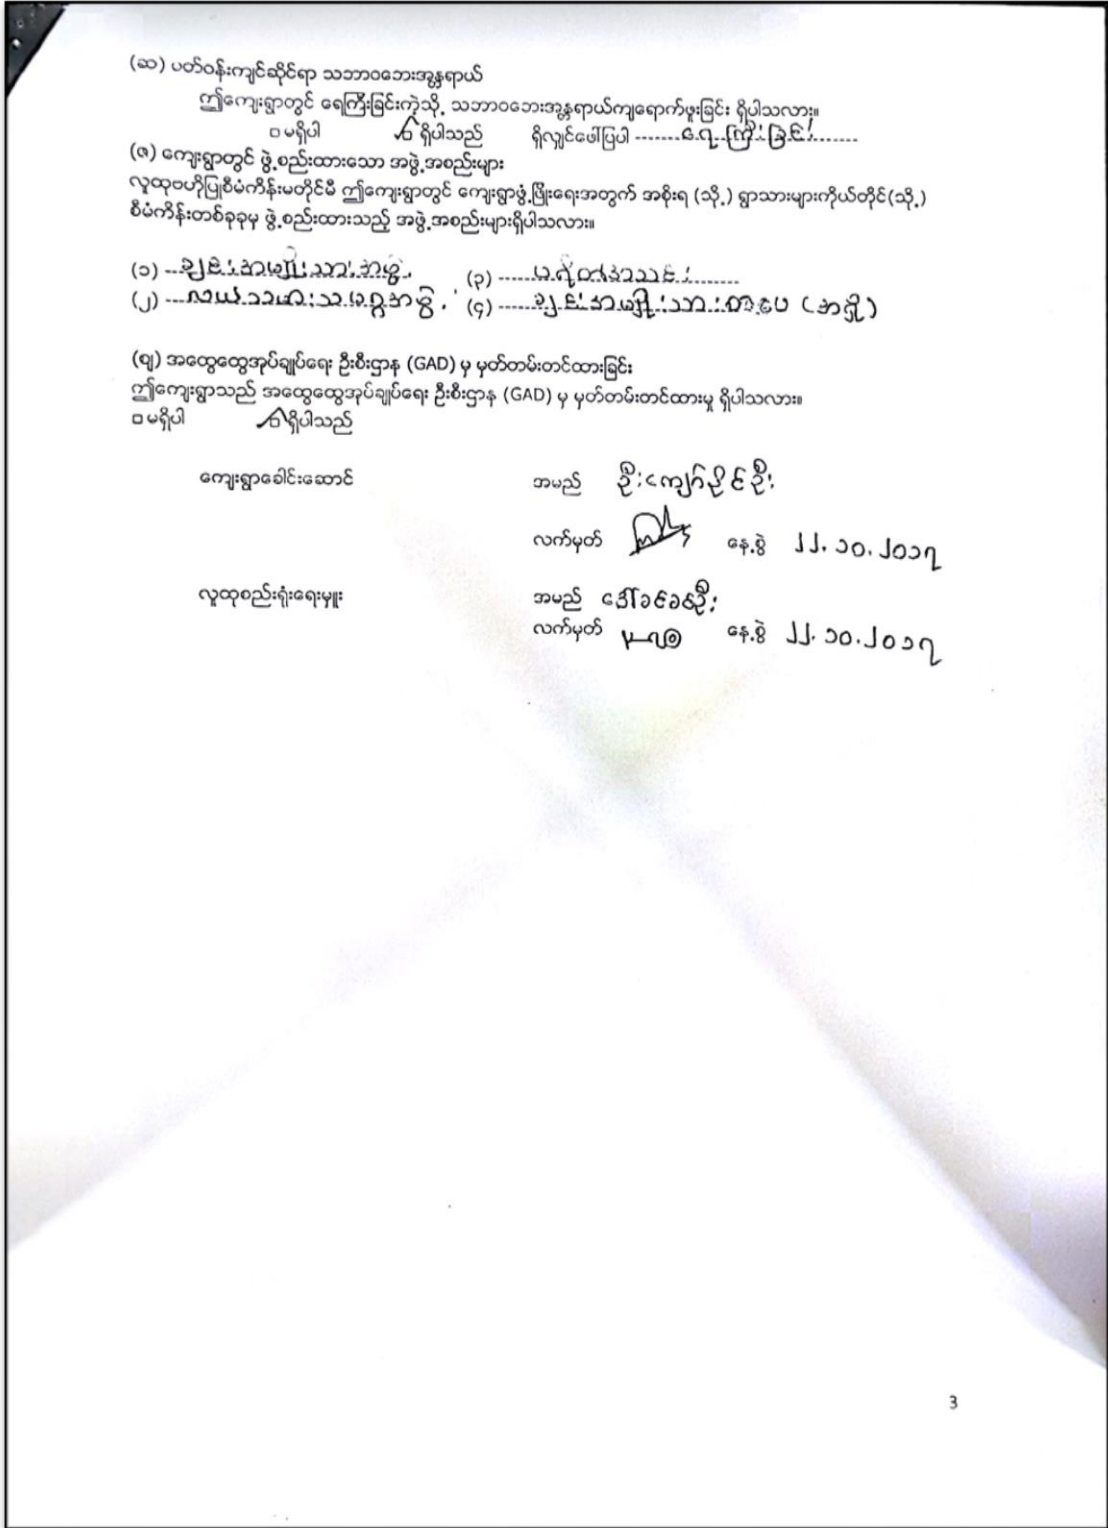 (ဆ) ပတ်ဝန်းကျင်ဆိုင်ရာ သဘာဝဘေးအန္တရာယ်
ဤကျေးရွာတွင် ရေကြီးခြင်းကဲ့သို့ သဘာဝဘေးအန္တရာယ်ကျရောက်ဖူးခြင်း ရှိပါသလား။
□ မရှိပါ □ ရှိပါသည် ရှိလျှင်ဖေါ်ပြပါ -------ရေကြီးခြင်း--------
(ဇ) ကျေးရွာတွင် ဖွဲ့စည်းထားသော အဖွဲ့အစည်းများ
လူထုဗဟိုပြုစီမံကိန်းမတိုင်မီ ဤကျေးရွာတွင် ကျေးရွာဖွံ့ဖြိုးရေးအတွက် အစိုးရ (သို့) ရွာသားများကိုယ်တိုင်(သို့)
စီမံကိန်းတစ်ခုခုမှ ဖွဲ့စည်းထားသည့် အဖွဲ့အစည်းများရှိပါသလား။
(၁) ---ချင်းအမျိုးသားအဖွဲ့. (၃) -----ပရဟိတအသင်း--------
(၂) ---လယ်သမားသမဂ္ဂအဖွဲ့. (၄) ------ချင်းအမျိုးသား (အရှို)
(ဈ) အထွေထွေအုပ်ချုပ်ရေး ဦးစီးဌာန (GAD) မှ မှတ်တမ်းတင်ထားခြင်း
ဤကျေးရွာသည် အထွေထွေအုပ်ချုပ်ရေး ဦးစီးဌာန (GAD) မှ မှတ်တမ်းတင်ထားမှု ရှိပါသလား။
□ မရှိပါ □ ရှိပါသည်
ကျေးရွာခေါင်းဆောင် အမည် ဦးကျော်ဦး
လက်မှတ် နေ့စွဲ ၂၂.၁၀.၂၀၁၇
လူထုစည်းရုံးရေးမှူး အမည် ဒေါ်ခင်ခင်ဦး
လက်မှတ် နေ့စွဲ ၂၂.၁၀.၂၀၁၇
3